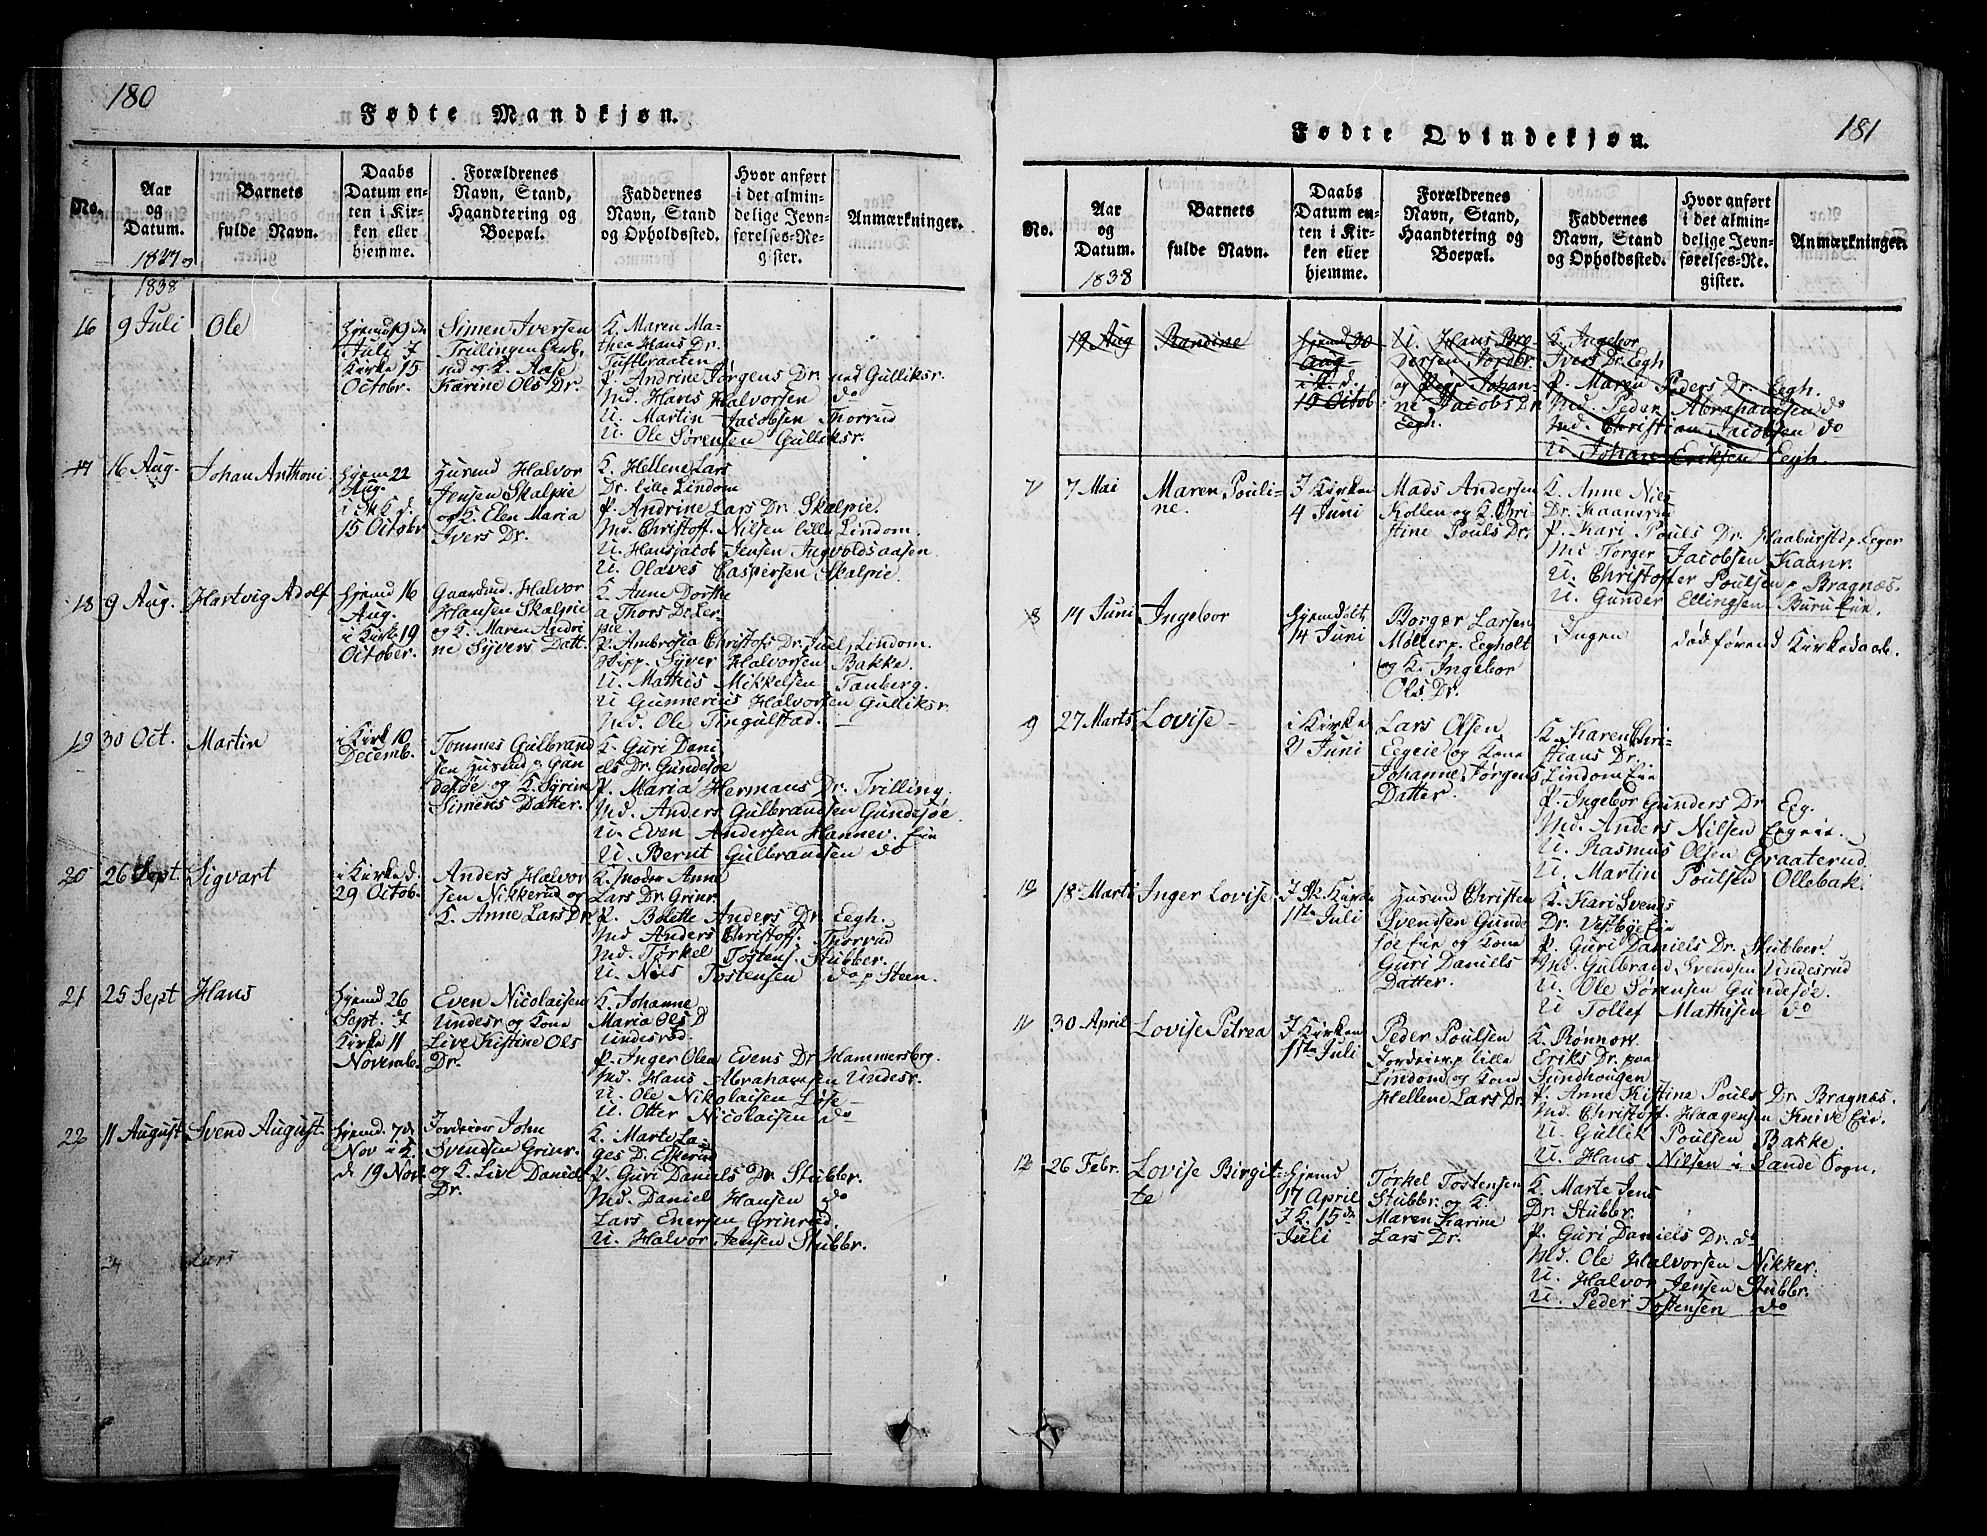 180
Fødte Mandkjøn.
No.
Aar
og
Datum.
1827 og
1838
Barnets
fulde Navn.
Daabs
Datum en-
ten i Kir-
ken eller
hjemme.
Forældrenes
Navn, Stand,
Haandtering og
Boepæl.
Faddernes
Navn, Stand
og Opholdssted.
Hvor anført
i det almin-
delige Jevn-
førelses-Re-
gister.
Anmærkninger.
16
9 Juli
Ole
hjemd 19 de
Juli I
Kirke 15
Octobr.
Simen Iversen
Trillingen
og K. Aase
Karine Ols Dr.
K. Maren Ma-
thea Hans Dr.
Tuftbraaten
P. Andrine Jørgens Dr. ned Gulliksr.
Md. Hans Halvorsen do
U. Martin Jacobsen Thorrud
U. Ole Sørensen Gulliksr.
17
16 Aug.
Johan Anthoni
hjem 22
Aug.
i K. d.
15 Octobr
Husmd Halvor
Jensen Skalpie
og K. Elen Maria
Ivers Dr.
K. Hellene Lars
Dr. lille Lindom
P. Andrine Lars Dr. Skalpie.
Md. Christoff. Nilsen lille Lindom.
U. Hansjacob Jensen Ingvoldsaasen
U. Olaves Caspersen Skalpie.
18
9 Aug.
Hartvig Adolf
hjemd 16
Aug.
i Kirk. 19
October.
Gaardmd. Halvor
Hansen Skalpie
og K. Maren Andri
ne Syvers Datt.
K. Anne Dorthe
a Thors Dr. Ler-
pie
P. Ambrosia Christofs Dr. Juel, Lindom.
Hipp. Syver Halvorsen Bakke.
U. Mathis Mikkelsen Tanberg.
U Gunnerius Halvorsen Gulliksr.
Md. Ole Tingulstad.
19
30 Oct.
Martin
i Kirk 10
Decemb.
Tommes Gulbrand
sen Husmd p. Gun
desøe og K. Syrine
Simens Datter.
K. Guri Dani
els Dr. Gundesøe
P. Maria Hermans Dr. Trilling.
Md. Anders Gulbrandsen Gundesøe.
U. Even Andersen Hannev. Eie
U. Bernt Gulbrandsen do
20
26 Sept.
Sigvart
i Kirke d.
29 Octob.
Anders Halvor
sen Nikkerud og
K. Anne Lars Dr
K. Moder Anne
Lars Dr Grinr.
P. Bolette Anders Dr. Eegh.
Md Anders Christoff. Thorrud
Md. Tørkel Tostens. Stubber.
U. Niels Tostensen do p Steen.
21
25 Sept
Hans
hjemd 26
Sept. I
Kirke 11
Novemb.
Even Nicolaisen
Undesr og Kone
Live Kistine Ols
Dr.
K. Johanne
Maria Ols D
Undesrud.
P. Inger Olea Evens Dr Hammersbrg.
Md. Hans Abrahamsen Undesr.
U. Ole Nikolaisen Løse
U. Otter Nicolaisen do
22
11 August
Svend August.
hjemd. 7 d.
Nov i K.
d. 19 Nov.
Jordeier John
Svendsen Grinr.
og K. Live Daniels
Dr.
K. Marte La-
ges D. Eskerud
P. Guri Daniels Dr Stubbr.
Md. Daniel Hansen do
Lars Enersen Grinrud.
U. Halvor Jensen Stubbr.
Lars
181
Fødte Qvindekjøn.
No.
Aar
og
Datum.
1838
Barnets
fulde Navn.
Daabs
Datum en-
ten i Kir-
ken eller
hjemme.
Forældrenes
Navn, Stand,
Haandtering og
Boepæl.
Faddernes
Navn, Stand
og Opholdssted.
Hvor anført
i det almin-
delige Jevn-
førelses-Re-
gister.
Anmærkninger.
19 Aug
Randine
hjemd 30
Aug
i K. d.
15 Octob
U. Hans Pe-
dersen Jordbr.
og Pige Johan-
ne Jacobs Dr
Eegh.
K. Ingebor
Ivers Dr. Eegh
P. Maren Peders Dr. Eegh.
Md. Peder Abrahamsen do
Md. Christian Jacobsen do
U Johan Eriksen Eegh.
7
7 Mai
Maren Pouli-
ne.
I Kirken
4 Juni
Mads Andersen
Kollen og K. Chri-
stine Pouls Dr.
K. Anne Niels
Dr. Kaanrud
P. Kari Pouls Dr. Haaburst p. Eger
Md Torger Jacobsen Kaanr.
U. Christoffer Poulsen p. Bragnæs.
U. Gunder Ellingsen Buru Eie.
8
14 Juni
Ingebor
hjemdøbt
14 Juni
Borger Larsen
Møller p. Eegholt
og K. Ingebor
Ols Dr.
Ingen
død før end Kirkedaab.
9
27 Marts
Lovise
i Kirke
21 Juni
Lars Olsen
Eegeie og Kone
Johanne Jørgens
Datter.
K. Karen Chri-
stians Dr.
Lindom Eie
P. Ingebor Gunders Dr Eeg.
Md. Anders Nilsen Eegeie.
U. Rasmus Olsen Graaterud.
U. Martin Poulsen Ollebak.
10
18 Marti
Inger Lovise
I Sk. Kirke
1ste Juli
Husmd Christen
Svendsen Gunde
søe Eie og Kone
Guri Daniels
Datter.
K. Kari Svends
Dr. Vestbye Eie
P. Guri Daniels Dr. Stubber.
Md. Gulbrand Svendsen Undesrud
U. Ole Sørensen Gundesøe.
U Tollef Mathisen do
11
30 April
Lovise Petrea
I Kirken
1ste Juli
Peder Poulsen
Jordeier p. lille
Lindom og Kone
Hellene Lars Dr
K. Rønnow
Eriks Dr. paa
Sundhougen
P. Anne Kistine Pouls Dr Bragnæs.
Md. Christoff. Haagensen Knive Eie.
U Gullik Poulsen Bakke.
U. Hans Nilsen i Sande Sogn.
12
26 Febr.
Lovise Birgit-
te
hjemd
17 April
I K. 15 de
Juli
Tørkel Tostensen
Stubbr. og K.
Maren Karine
Lars Dr.
K. Marte Jens
Dr. Stubbr.
P. Guri Daniels Dr. do
Md. Ole Halvorsen Nikker.
U. Halvor Jensen Stubbr.
U. Peder Tostensen do